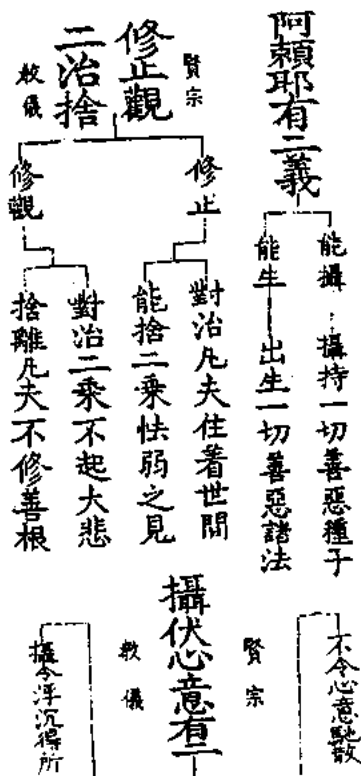 阿賴耶有二義
能攝
攝持一切善惡種子
能生
出生一切善惡諸法
賢宗
修止觀
二治捨
教儀
修止
對治凡夫住着世間
能捨二乘怯弱之見
修觀
對治二乘不起大悲
捨離凡夫不修善根
不令心意馳散
賢宗
攝伏心意有二
教儀
攝令浮沉得所